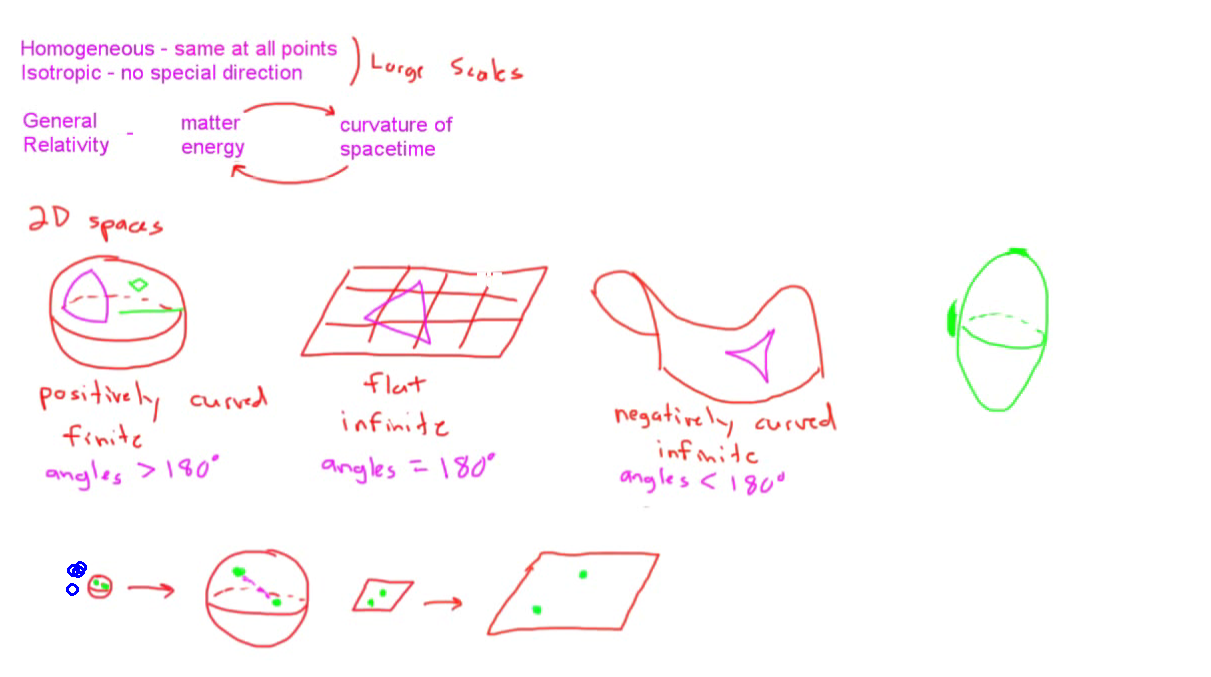 Homogeneous - same at all points
Isotropic - no special direction
) Large Scales
General Relativity -
matter energy
curvature of spacetime
2D spaces
positively curved
finite
angles > 180°
flat
infinite
angles = 180°
negatively curved
infinite
angles < 180°